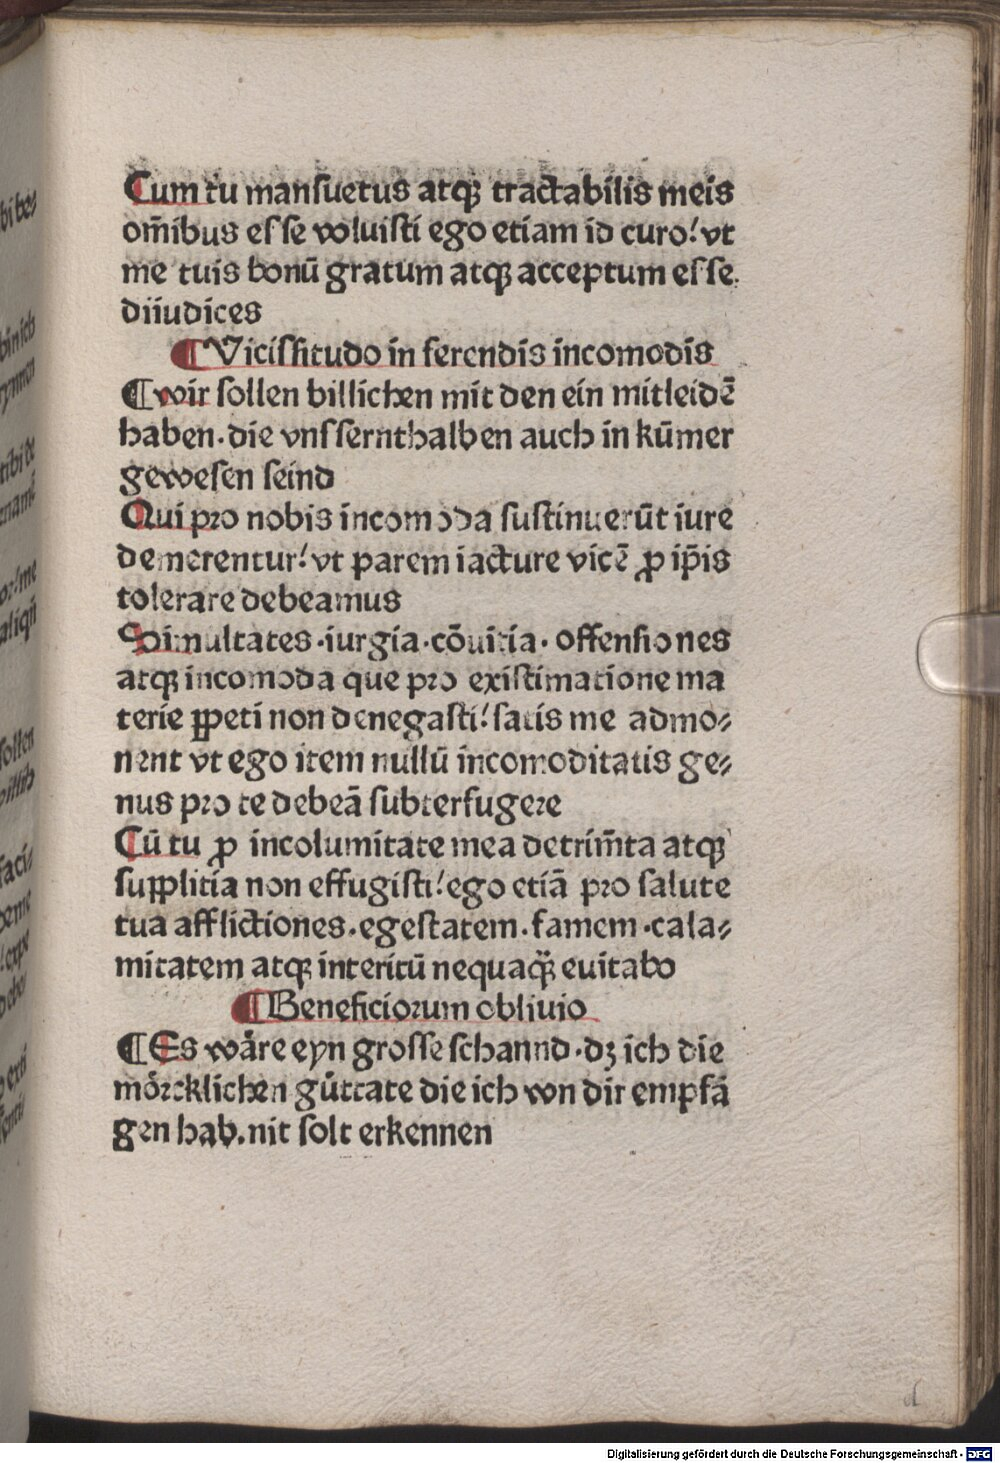 Cum tu mansuetus atqꝫ tractabilis meis
om̄ibus esse woluisti ego etiam id curo! vt
me tuis bonū gratum atqꝫ acceptum esse.
diiudices
¶ Vicissitudo in ferendis incomodis
¶ wir sollen billichen mit den ein mitleidē
haben. die vnssernthalben auch in kūmer
gewesen seind
Qui pro nobis incomoda sustinuerūt iure
demerentur! vt parem iacture vicē ꝓ ip̄is
tolerare debeamus
Simultates. iurgia. cōuitia. offensiones
atqꝫ incomoda que pro existimatione ma
terie ꝑpeti non denegasti! satis me admo⸗
nent vt ego item nullū incomoditatis ge⸗
nus pro te debeā subterfugere
Cū tu ꝓ incolumitate mea detrim̄ta atqꝫ
supplitia non effugisti! ego etiā pro salute
tua afflictiones. egestatem. famem. cala⸗
mitatem atqꝫ interitū nequaqꝫ̄ euitabo
¶ Beneficiorum obliuio
¶ Es wåre eyn grosse schannd. dꝫ ich die
mörcklichen gůttate die ich von dir empfā
gen hab. nit solt erkennen
d
Digitalisierung gefördert durch die Deutsche Forschungsgemeinschaft - DFG